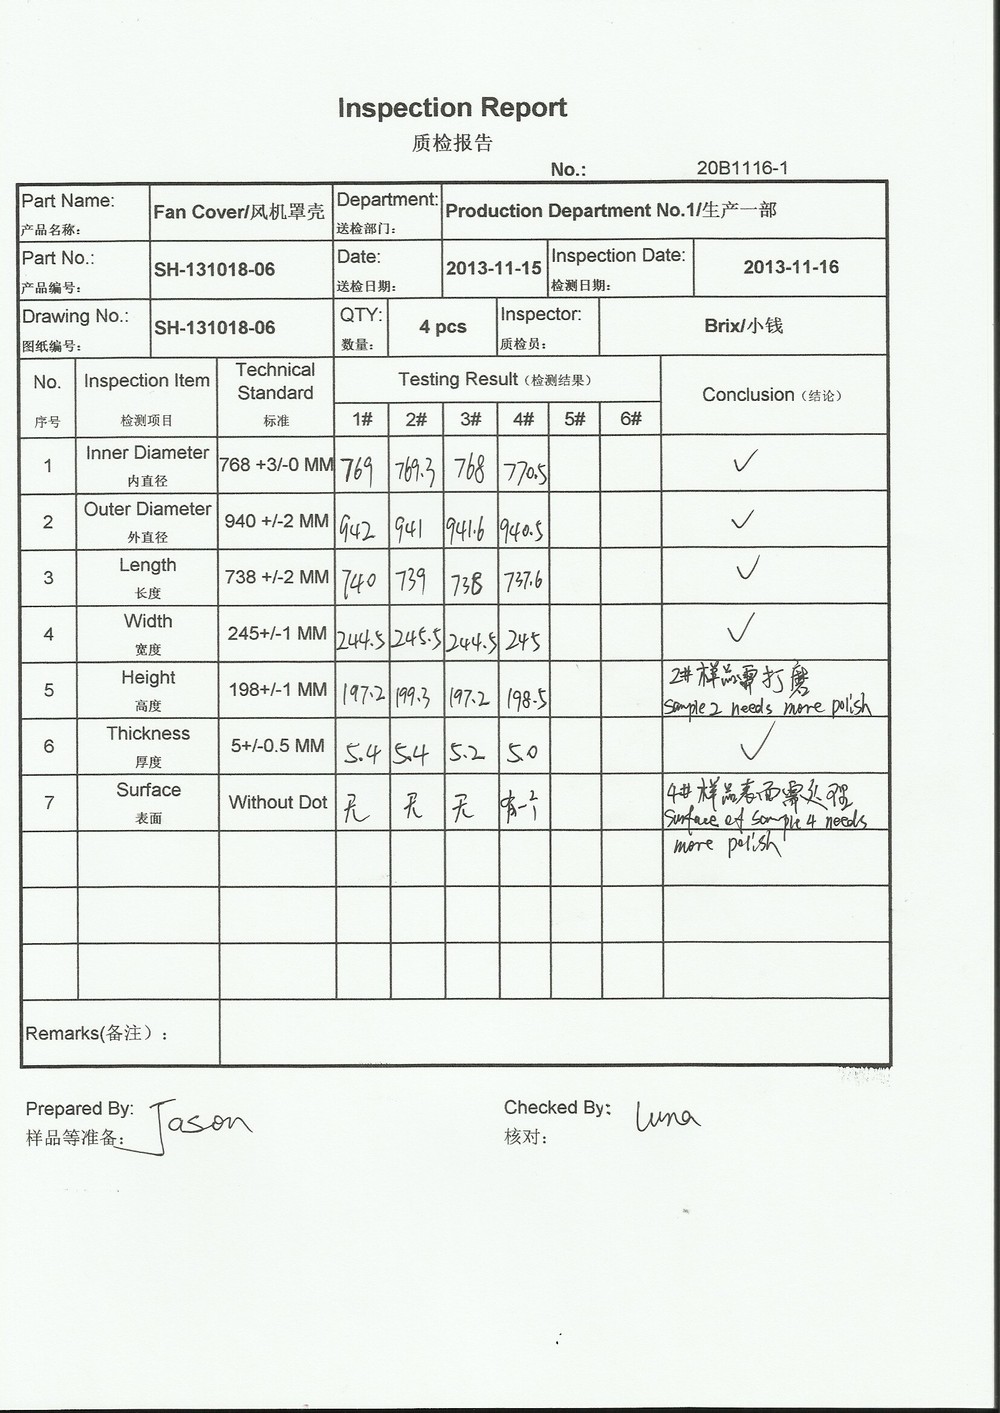 Inspection Report
质检报告
No.: 20B1116-1
Part Name: Fan Cover/风机罩壳 Department: Production Department No.1/生产一部
产品名称: 送检部门:
Part No.: SH-131018-06 Date: 2013-11-15 Inspection Date: 2013-11-16
产品编号: 送检日期: 检测日期:
Drawing No.: SH-131018-06 QTY: 4 pcs Inspector: Brix/小钱
图纸编号: 数量: 质检员:
No. Inspection Item Technical Standard Testing Result（检测结果） Conclusion（结论）
序号 检测项目 标准 1# 2# 3# 4# 5# 6#
1 Inner Diameter 768 +3/-0 MM 769 769.3 768 770.5 ✓
内直径
2 Outer Diameter 940 +/-2 MM 942 941 941.6 940.5 ✓
外直径
3 Length 738 +/-2 MM 740 739 738 737.6 ✓
长度
4 Width 245+/-1 MM 244.5 245.5 244.5 245 ✓
宽度
5 Height 198+/-1 MM 197.2 199.3 197.2 198.5 2#样品需打磨
高度 Sample 2 needs more polish
6 Thickness 5+/-0.5 MM 5.4 5.4 5.2 5.0 ✓
厚度
7 Surface Without Dot 无 无 无 有 4#样品表面需处理
表面 Surface of sample 4 needs
more polish
Remarks(备注）:
Prepared By: Jason Checked By: Luna
样品等准备: 核对: